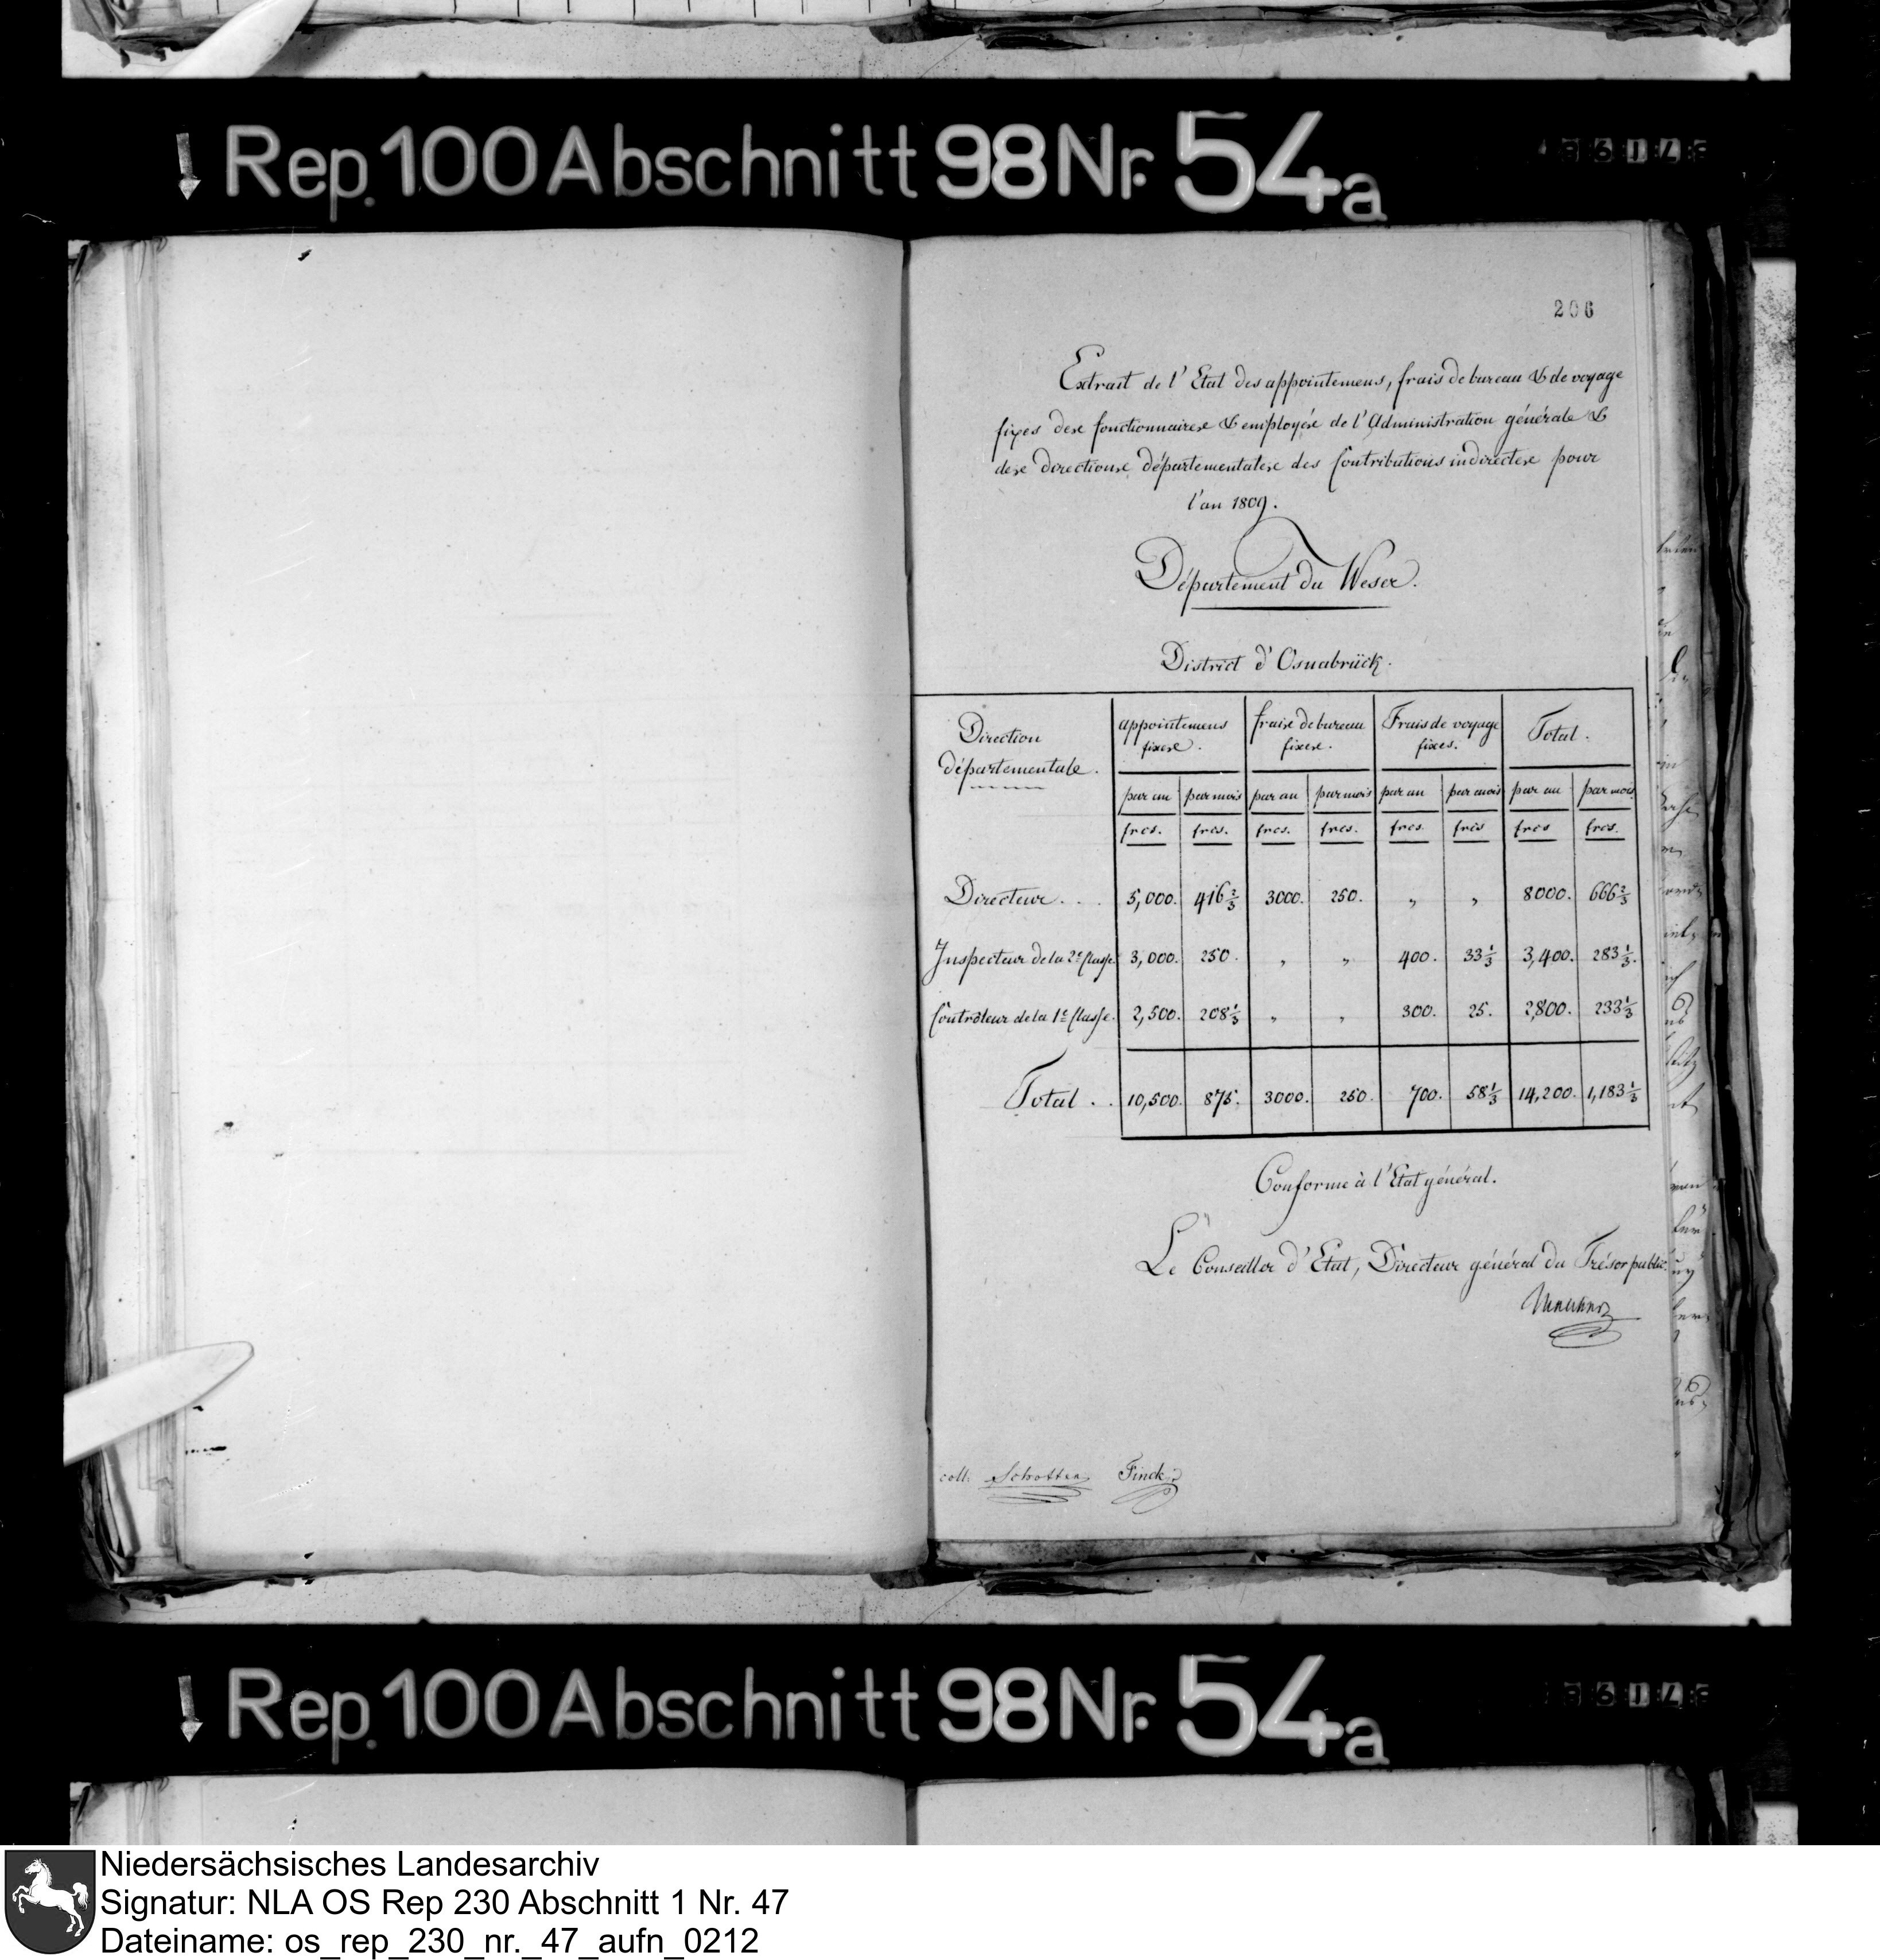 Rep. 100 Abschnitt 98 Nr. 54a
206
Extrait de l'Etat des appointemens, frais de bureau & de voyage
fixes des fonctionnaires & employés de l'Administration générale &
des directions départementales des Contributions indirectes pour
l'an 1809.
Département du Weser.
District d'Osnabrück.
Direction départementale. appointemens fixes. frais de bureau fixes. Frais de voyage fixes. Total.
par an par mois par an par mois par an par mois par an par mois
frcs. frcs. frcs. frcs. frcs. frcs frcs frcs.
Directeur . . . 5,000. 416 2/3 3000. 250. " " 8000. 666 2/3
Inspecteur de la 2e Classe. 3,000. 250. " " 400. 33 1/3 3,400. 283 1/3.
Contrôleur de la 1e Classe. 2,500. 208 1/3 " " 300. 25. 2,800. 233 1/3
Total . . 10,500. 875. 3000. 250. 700. 58 1/3 14,200. 1,183 1/3
Conforme à l'Etat général.
Le Conseiller d'Etat, Directeur général du Trésor public.
coll. Schotten Finck
Rep. 100 Abschnitt 98 Nr. 54a
Niedersächsisches Landesarchiv
Signatur: NLA OS Rep 230 Abschnitt 1 Nr. 47
Dateiname: os_rep_230_nr._47_aufn_0212